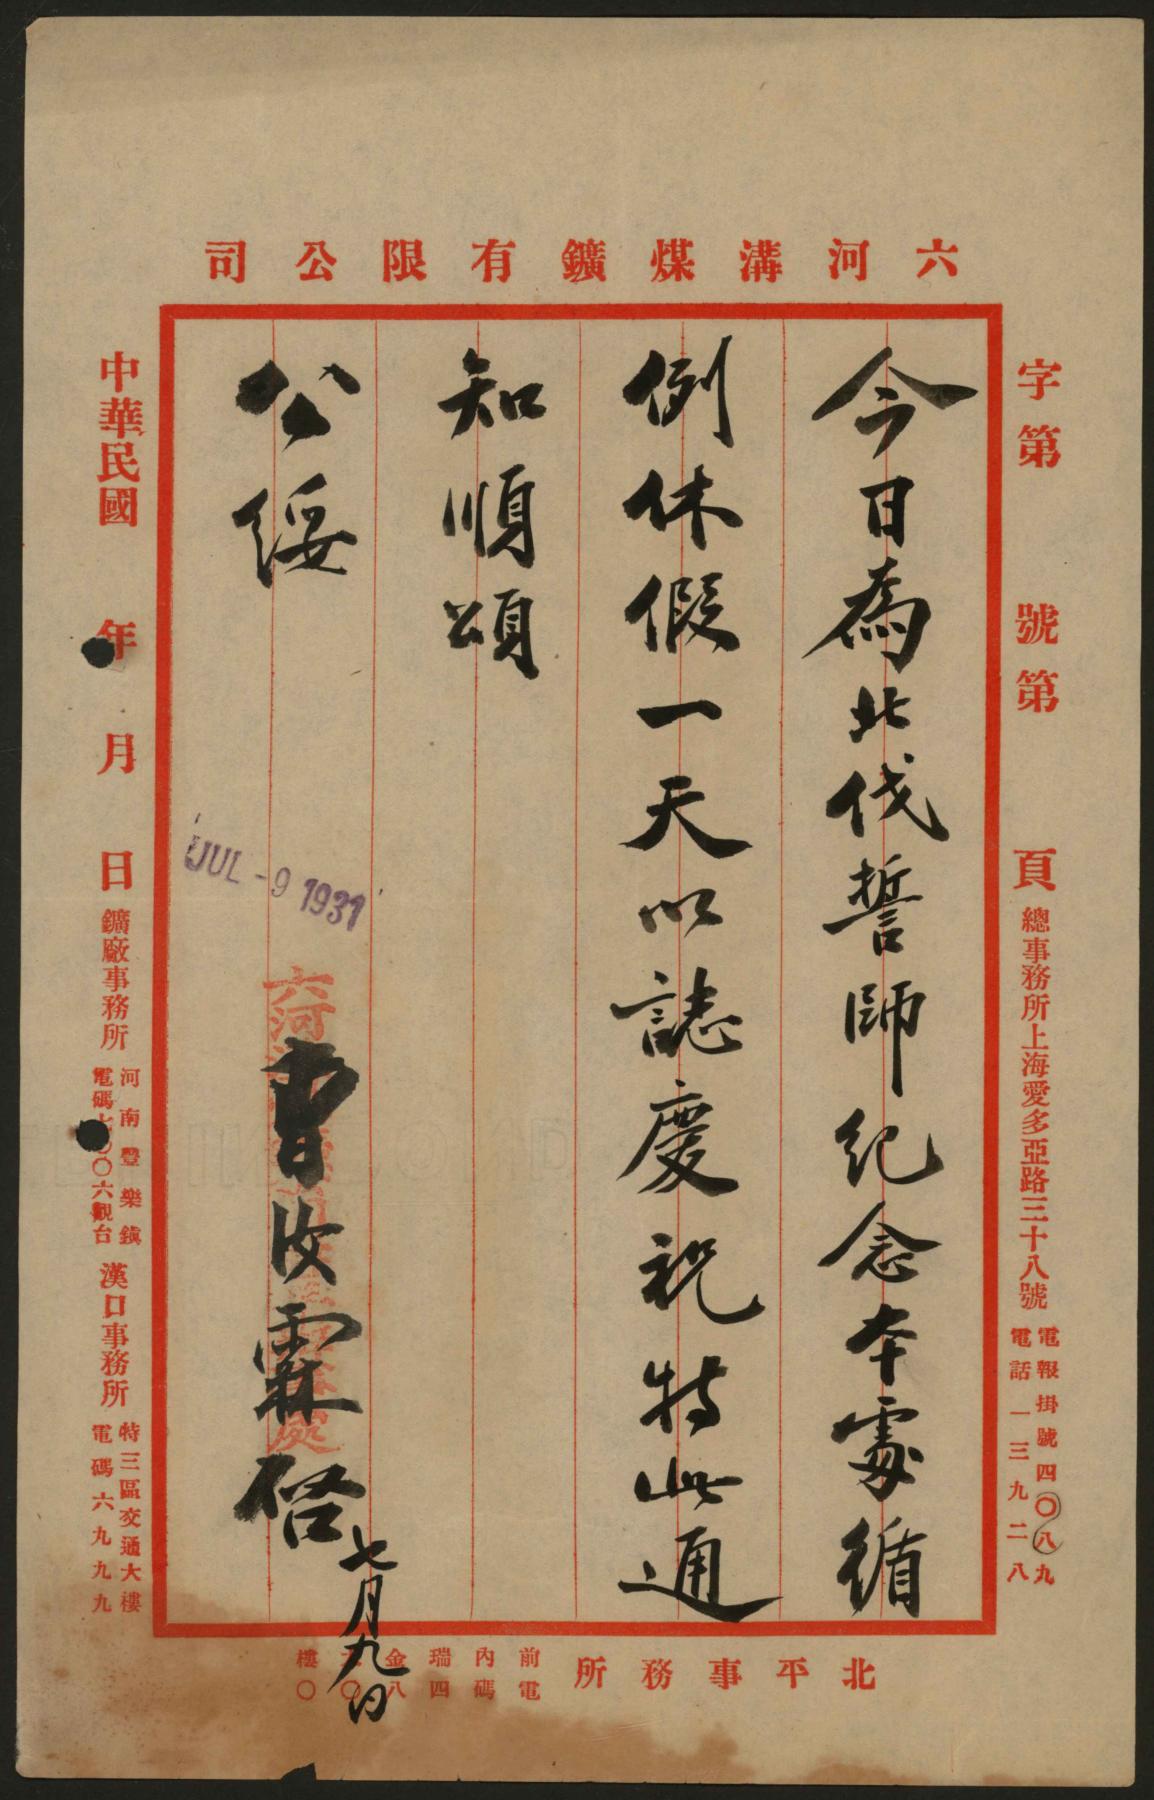 六河溝煤鑛有限公司
字第　號第　頁
總事務所上海愛多亞路三十八號
電報掛號四〇八九
電話一三九二八
今日為北伐誓師紀念本處循
例休假一天以誌慶祝特此通
知順頌
公綏
JUL -9 1931
六河
處
曹汝霖啓
七月九日
中華民國　年　月　日
鑛廠事務所
河南豐樂鎮
電碼七〇〇六觀台
漢口事務所
特三區交通大樓
電碼六九九九
北平事務所
前內瑞金大樓
電碼四八〇〇